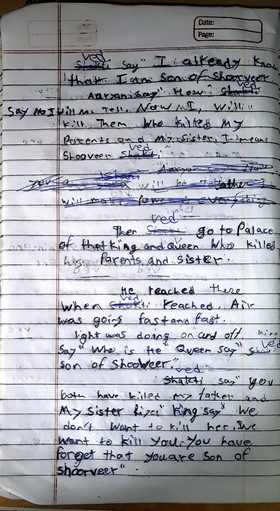 Date:
Page:
ved
Shakti say" I already know
that I am son of Shoorveer
Aaryan say" How! Shakti
Say No I will No Tell. Now I, will
kill Them Who killed My
Parents and My Sister, I means
ved
Shooveer Shakti.
ved
Then Shakti go to Palace
of that King and Queen Who killed
his Parents and Sister.
He reached there
ved
When Shakti reached, Air
was going fast and fast.
light was doing on and off
Say" Who is He Queen say"
ved
son of Shooveer.
ved
Shakti say" you
both have killed my father and
My Sister King say" We
don't Want to kill her, We
want to kill You. You have
forget that you are son of
shoorveer".